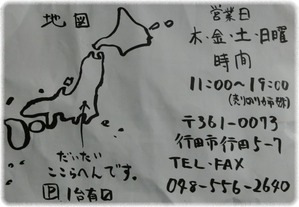 地図
だいたい
ここらへんです。
P 1台有
営業日
木・金・土・日曜
時間
11:00〜19:00
〒361-0073
行田市行田5-7
TEL・FAX
048-556-2640